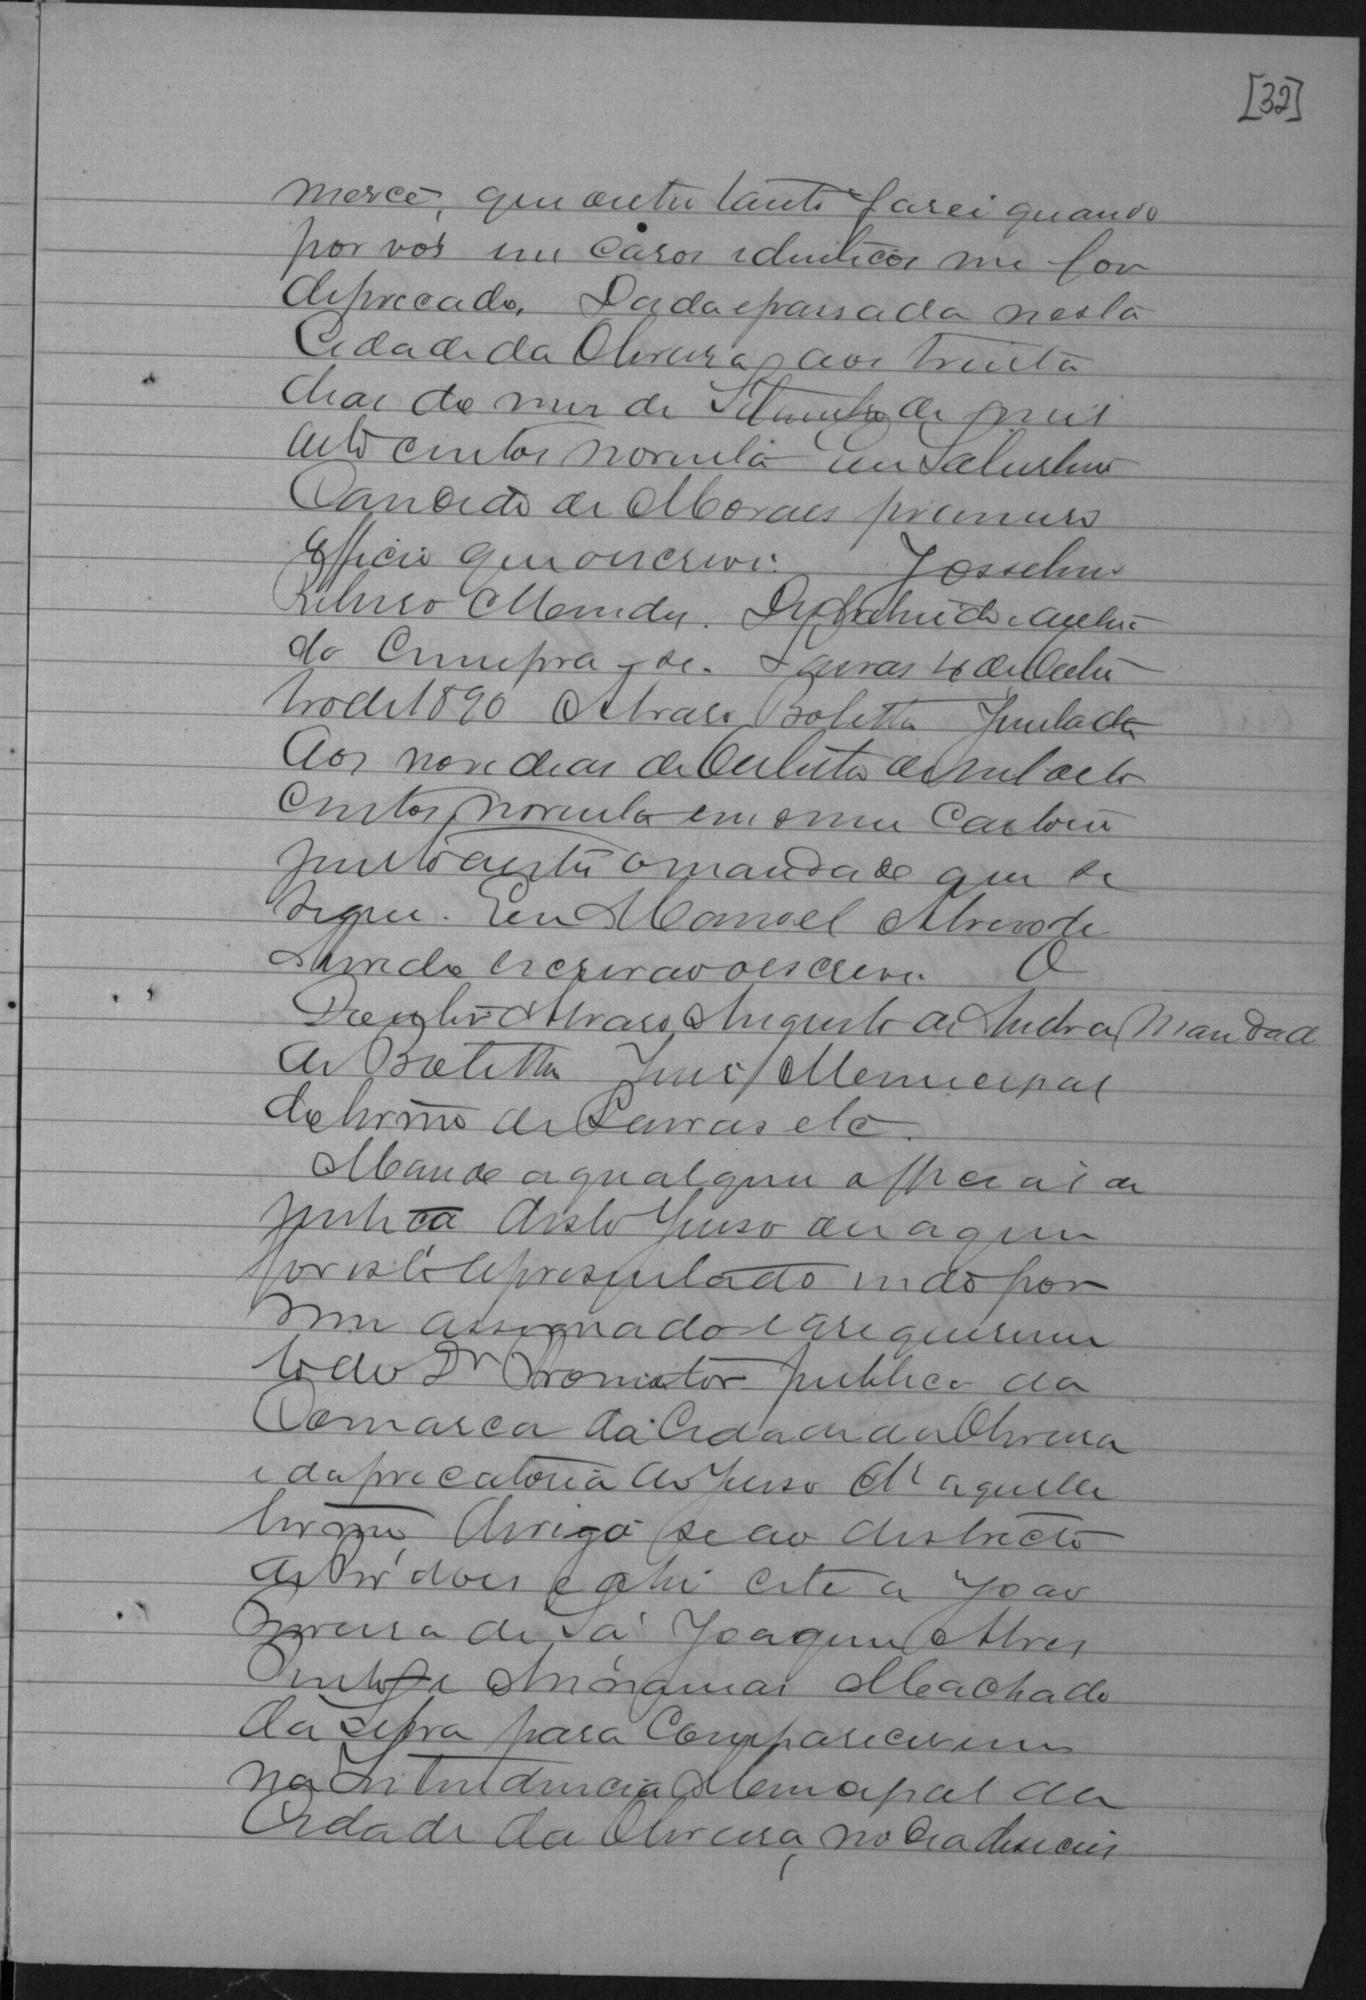 [32]
mercê, que outro tanto farei quando
por vós em casos identicos me for
deprecado. Dada e passada nesta
Cidade da Oliveira, aos trinta
dias do mez de Setembro de mil
oito centos noventa Eu Salustino
Candido de Moraes primeiro
Officio que o escrevi. Josselino
Ribeiro Mendes. Distribuido e autua
do Cumpra-se. Lavras 4 de Outu
bro de 1890 Alvaro Botelho Juntada
Aos nove dias de Outubro de mil oito
centos noventa em o meu Cartorio
junto a estes o mandado que se
segue. Eu Manoel Alves de
Azevedo escrivão o escrevi. O
Doutor Alvaro Augusto de Andra Mandado
de Botelho Juiz Municipal
do termo de Lavras etc.
Mando a qualquer official de
justiça deste Juizo ou a quem
for este apresentado indo por
mim assignado e a requerimen
to do Dr Promotor publico da
Comarca da Cidade da Oliveira
e da precatoria do Juizo d'aquelle
termo, dirija se ao districto
de e ahi cite a João
Pereira de Sá Joaquim Alves
Pinto e Machado
da para comparecerem
na Intendencia Municipal da
Cidade da Oliveira, no dia deseseis